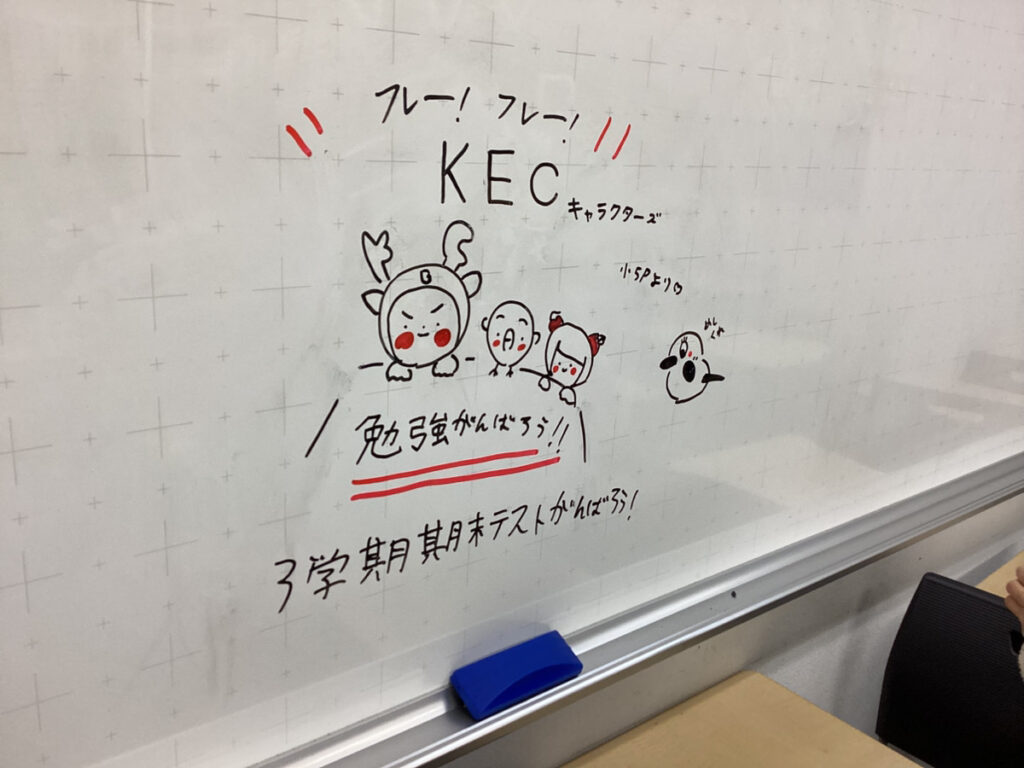 フレー! フレー!
KEC
キャラクターズ
小5Pより♡
めし
くれ
勉強がんばろう!!
3学期期末テストがんばろう!